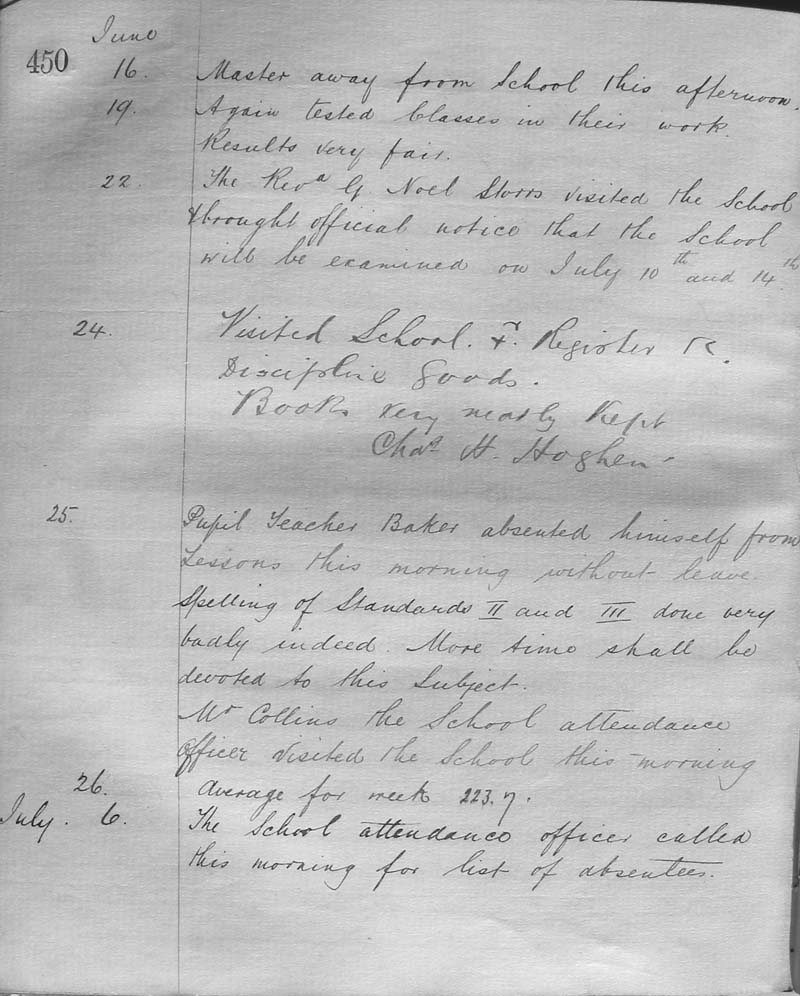 June
450
16. Master away from School this afternoon.
19. Again tested Classes in their work.
Results very fair.
22. The Revd G. Noel Storrs visited the School
& brought official notice that the School
will be examined on July 10th and 14th.
24. Visited School. Register
Discipline good.
Books very neatly kept
Chas H.
25. Pupil Teacher Baker absented himself from
Lessons this morning without leave.
Spelling of Standards II and III done very
badly indeed. More time shall be
devoted to this Subject.
Mr Collins the School attendance
Officer visited the School this morning
26. Average for week 223.7.
July. 6. The School attendance officer called
this morning for list of absentees.